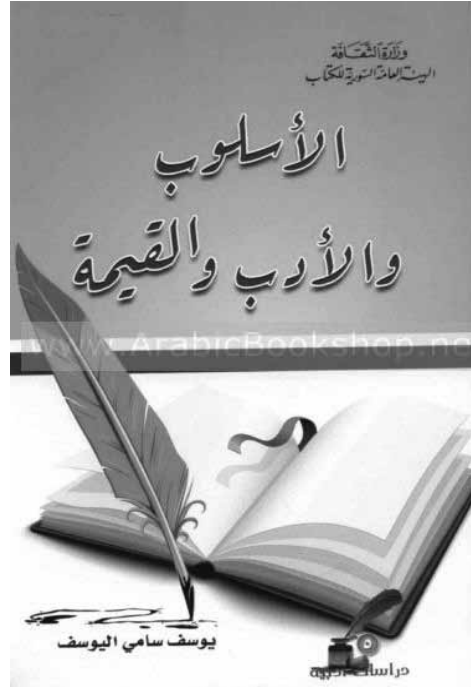 وزارة الثقافة
الهيئة العامة السورية للكتاب
الأسلوب
والأدب والقيمة
www.ArabicBookshop.ne
يوسف سامي اليوسف
دراسات أدبية